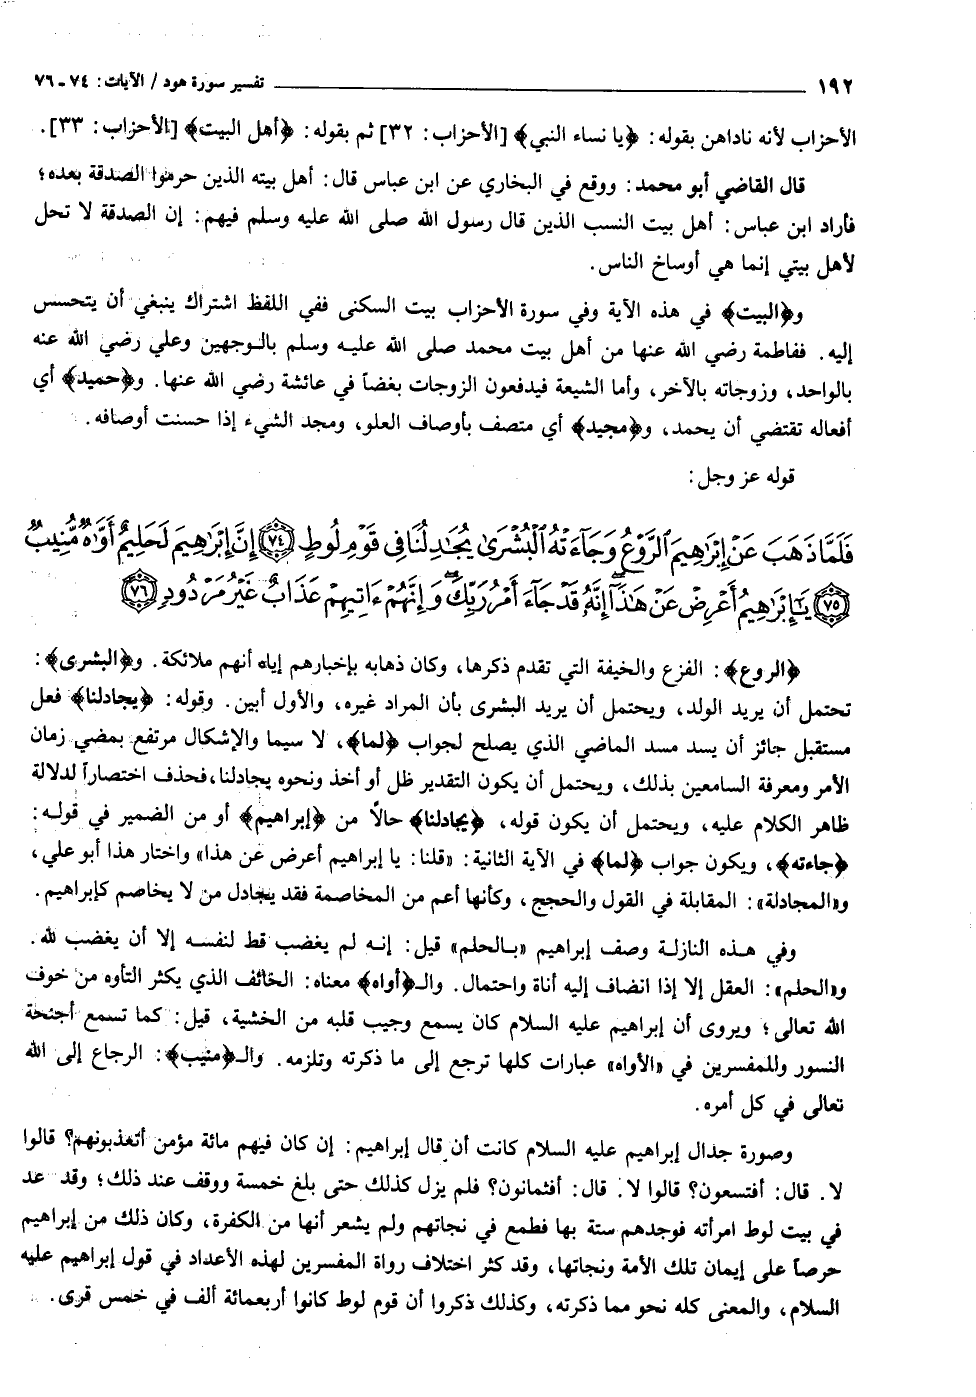 ١٩٢ تفسير سورة هود / الآيات: ٧٤ - ٧٦
الأحزاب لأنه ناداهن بقوله: ﴿يا نساء النبي﴾ [الأحزاب: ٣٢] ثم بقوله: ﴿أهل البيت﴾ [الأحزاب: ٣٣].
قال القاضي أبو محمد: ووقع في البخاري عن ابن عباس قال: أهل بيته الذين حرموا الصدقة بعده؛
فأراد ابن عباس: أهل بيت النسب الذين قال رسول الله صلى الله عليه وسلم فيهم: إن الصدقة لا تحل
لأهل بيتي إنما هي أوساخ الناس.
و﴿البيت﴾ في هذه الآية وفي سورة الأحزاب بيت السكنى ففي اللفظ اشتراك ينبغي أن يتحسس
إليه. ففاطمة رضي الله عنها من أهل بيت محمد صلى الله عليه وسلم بالوجهين وعلي رضي الله عنه
بالواحد، وزوجاته بالآخر، وأما الشيعة فيدفعون الزوجات بغضاً في عائشة رضي الله عنها. و﴿حميد﴾ أي
أفعاله تقتضي أن يحمد، و﴿مجيد﴾ أي متصف بأوصاف العلو، ومجد الشيء إذا حسنت أوصافه.
قوله عز وجل:
فَلَمَّا ذَهَبَ عَنْ إِبْرَاهِيمَ ٱلرَّوْعُ وَجَآءَتْهُ ٱلْبُشْرَىٰ يُجَادِلُنَا فِي قَوْمِ لُوطٍ ﴿٧٤﴾ إِنَّ إِبْرَاهِيمَ لَحَلِيمٌ أَوَّاهٌ مُّنِيبٌ
﴿٧٥﴾ يَا إِبْرَاهِيمُ أَعْرِضْ عَنْ هَٰذَآ إِنَّهُ قَدْ جَآءَ أَمْرُ رَبِّكَ وَإِنَّهُمْ ءَاتِيهِمْ عَذَابٌ غَيْرُ مَرْدُودٍ ﴿٧٦﴾
﴿الروع﴾: الفزع والخيفة التي تقدم ذكرها، وكان ذهابه بإخبارهم إياه أنهم ملائكة. و﴿البشرى﴾:
تحتمل أن يريد الولد، ويحتمل أن يريد البشرى بأن المراد غيره، والأول أبين. وقوله: ﴿يجادلنا﴾ فعل
مستقبل جائز أن يسد مسد الماضي الذي يصلح لجواب ﴿لما﴾، لا سيما والإشكال مرتفع بمضي زمان
الأمر ومعرفة السامعين بذلك، ويحتمل أن يكون التقدير ظل أو أخذ ونحوه يجادلنا، فحذف اختصاراً لدلالة
ظاهر الكلام عليه، ويحتمل أن يكون قوله، ﴿يجادلنا﴾ حالاً من ﴿إبراهيم﴾ أو من الضمير في قوله:
﴿جاءته﴾، ويكون جواب ﴿لما﴾ في الآية الثانية: «قلنا: يا إبراهيم أعرض عن هذا» واختار هذا أبو علي،
و«المجادلة»: المقابلة في القول والحجج، وكأنها أعم من المخاصمة فقد يجادل من لا يخاصم كإبراهيم.
وفي هذه النازلة وصف إبراهيم «بالحلم» قيل: إنه لم يغضب قط لنفسه إلا أن يغضب لله.
و«الحلم»: العقل إلا إذا انضاف إليه أناة واحتمال. والـ﴿أواه﴾ معناه: الخائف الذي يكثر التأوه من خوف
الله تعالى؛ ويروى أن إبراهيم عليه السلام كان يسمع وجيب قلبه من الخشية، قيل: كما تسمع أجنحة
النسور وللمفسرين في «الأواه» عبارات كلها ترجع إلى ما ذكرته وتلزمه. والـ﴿منيب﴾: الرجاع إلى الله
تعالى في كل أمره.
وصورة جدال إبراهيم عليه السلام كانت أن قال إبراهيم: إن كان فيهم مائة مؤمن أتعذبونهم؟ قالوا
لا. قال: أفتسعون؟ قالوا لا. قال: أفثمانون؟ فلم يزل كذلك حتى بلغ خمسة ووقف عند ذلك؛ وقد عد
في بيت لوط امرأته فوجدهم ستة بها فطمع في نجاتهم ولم يشعر أنها من الكفرة، وكان ذلك من إبراهيم
حرصاً على إيمان تلك الأمة ونجاتها، وقد كثر اختلاف رواة المفسرين لهذه الأعداد في قول إبراهيم عليه
السلام، والمعنى كله نحو مما ذكرته، وكذلك ذكروا أن قوم لوط كانوا أربعمائة ألف في خمس قرى.